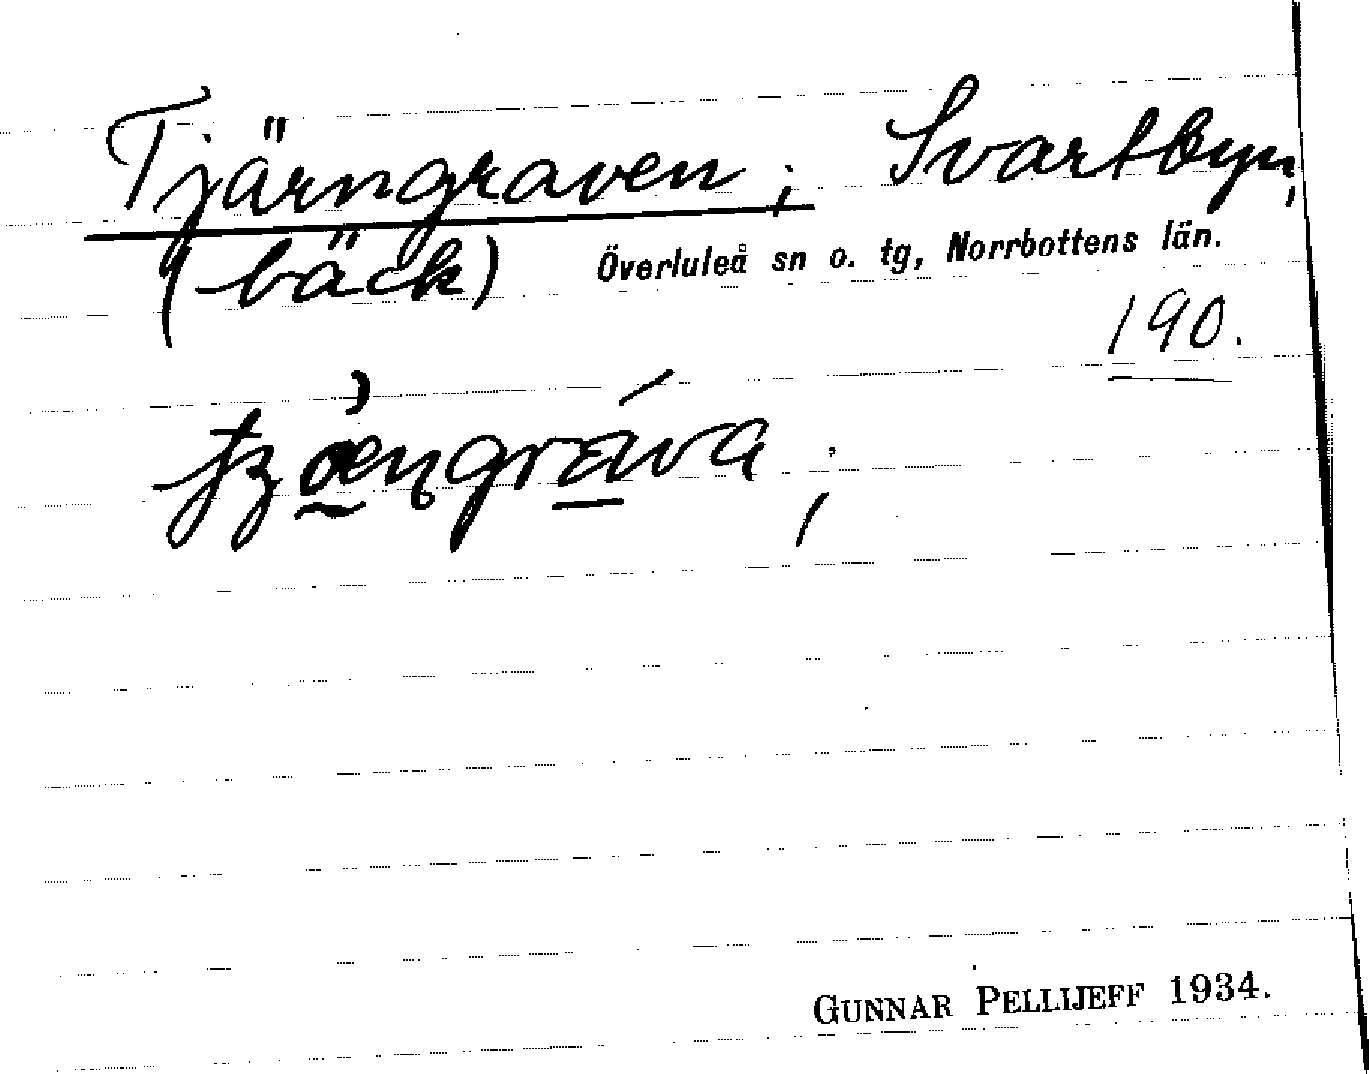 Tjärngraven; Svartbyn,
(bäck) Överluleå sn o. tg, Norrbottens län.
190.
GUNNAR PELLIJEFF 1934.